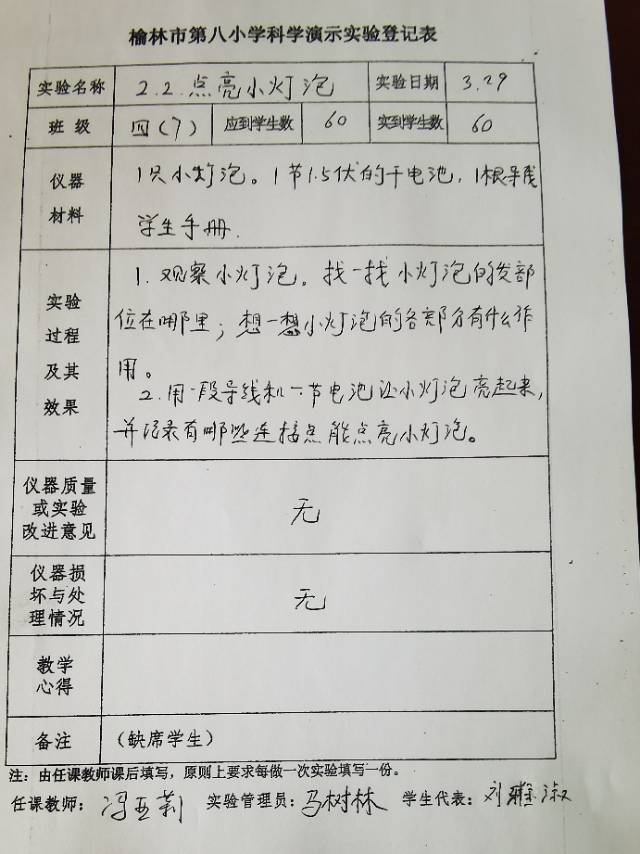 榆林市第八小学科学演示实验登记表
实验名称 2.2.点亮小灯泡 实验日期 3.29
班 级 四(7) 应到学生数 60 实到学生数 60
仪器
材料
1只小灯泡。1节1.5伏的干电池,1根导线
学生手册.
实验
过程
及其
效果
1. 观察小灯泡。找一找小灯泡的发部
位在哪里;想一想小灯泡的各部分有什么作
用。
2.用一段导线和一节电池让小灯泡亮起来,
并记录有哪些连接点能点亮小灯泡。
仪器质量
或实验
改进意见
无
仪器损
坏与处
理情况
无
教学
心得
备注 (缺席学生)
注:由任课教师课后填写,原则上要求每做一次实验填写一份。
任课教师:冯亚莉 实验管理员:马树林 学生代表:刘 淑